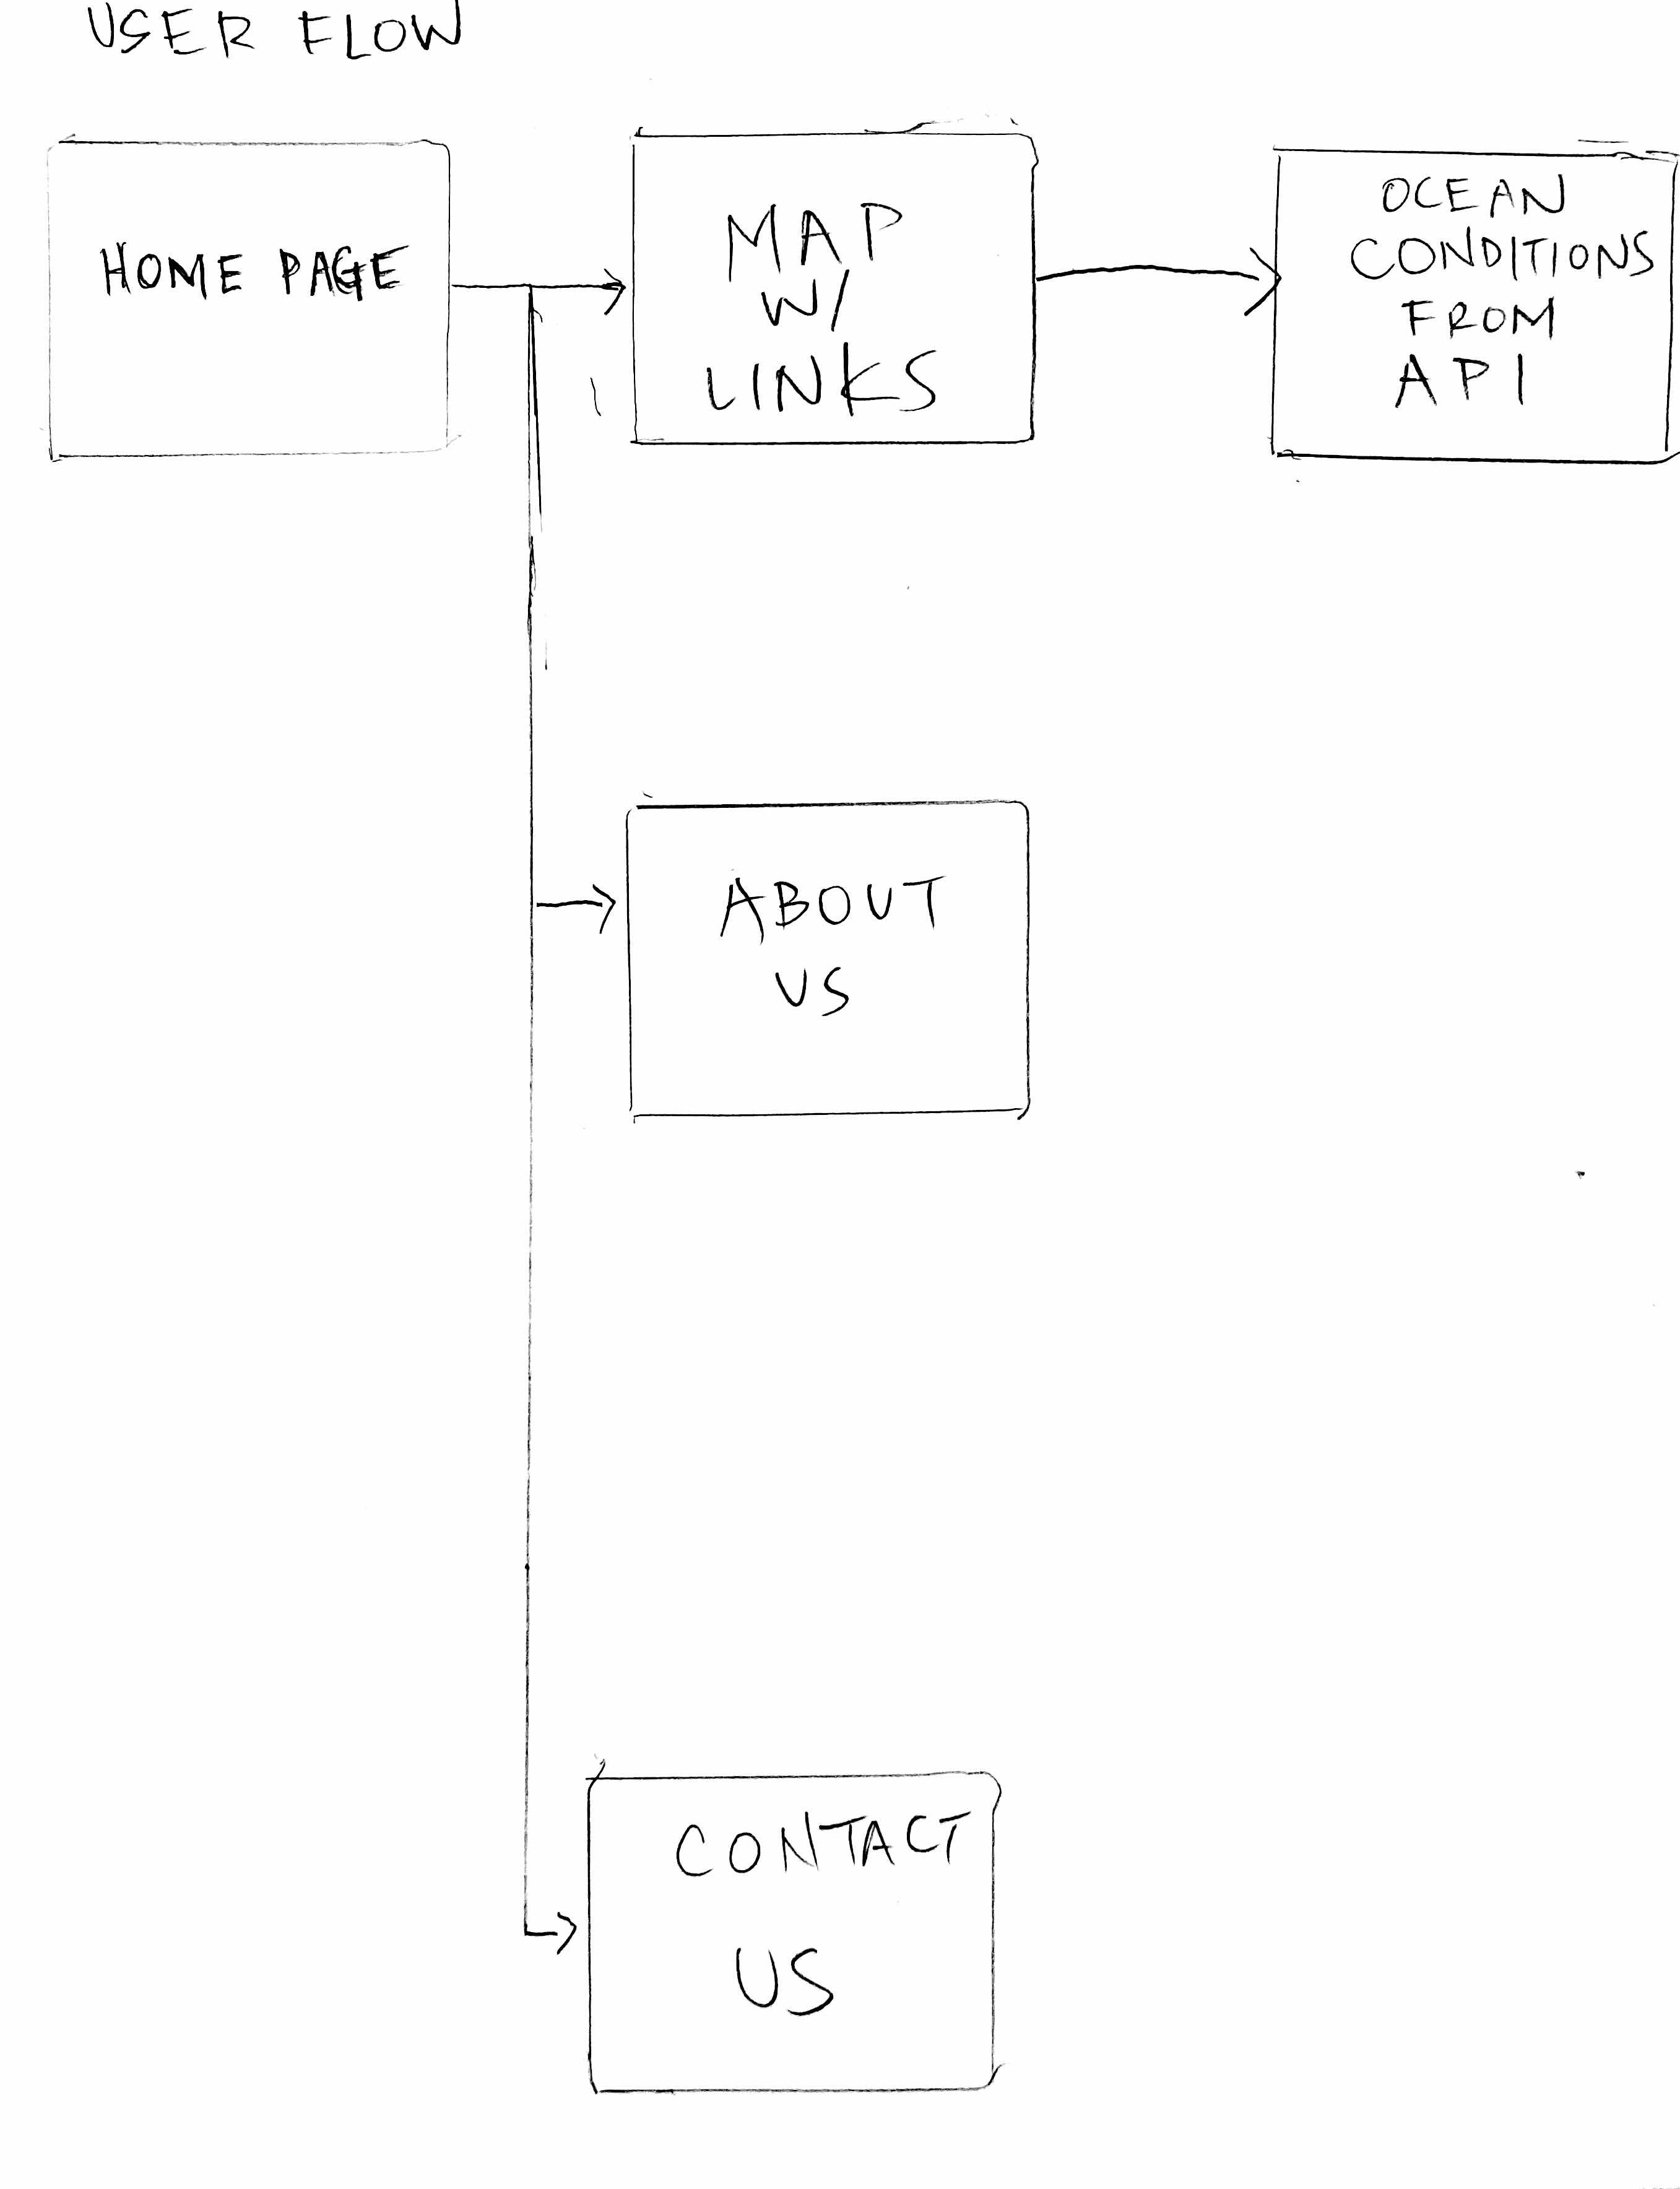 USER FLOW
HOME PAGE
MAP
W/
LINKS
OCEAN
CONDITIONS
FROM
API
ABOUT
US
CONTACT
US